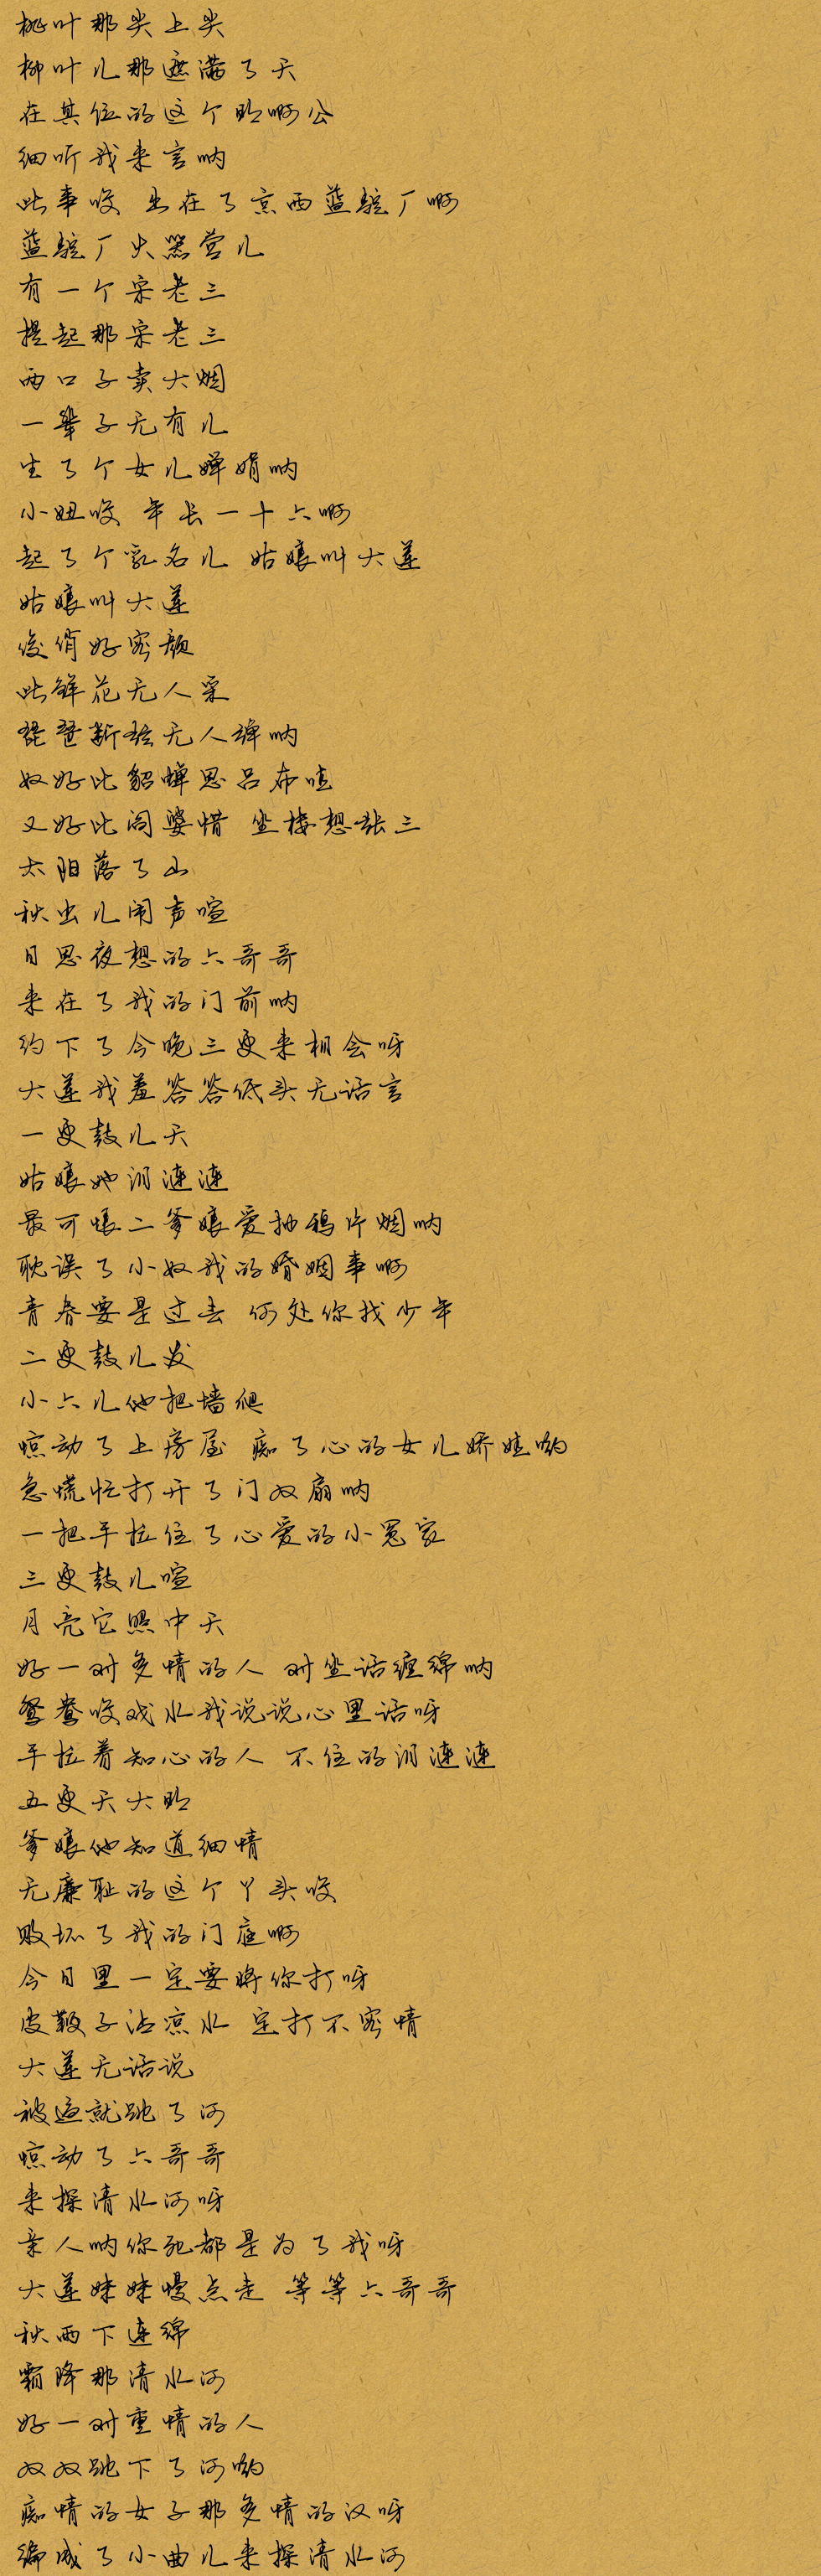 桃叶那尖上尖
柳叶儿那遮满了天
在其位的这个明啊公
细听我来言呐
此事哎 出在了京西蓝靛厂啊
蓝靛厂火器营儿
有一个宋老三
提起那宋老三
两口子卖大烟
一辈子无有儿
生了个女儿婵娟呐
小妞哎 年长一十六啊
起了个乳名儿 姑娘叫大莲
姑娘叫大莲
俊俏好容颜
此鲜花无人采
琵琶断弦无人弹呐
奴好比貂蝉思吕布哇
又好比阎婆惜 坐楼想张三
太阳落了山
秋虫儿闹声喧
日思夜想的六哥哥
来在了我的门前呐
约下了今晚三更来相会呀
大莲我羞答答低头无话言
一更鼓儿天
姑娘她泪涟涟
最可恨二爹娘爱抽鸦片烟呐
耽误了小奴我的婚姻事啊
青春要是过去 何处你找少年
二更鼓儿发
小六儿他把墙爬
惊动了上房屋 痴了心的女儿娇娃哟
急慌忙打开了门双扇呐
一把手拉住了心爱的小冤家
三更鼓儿喧
月亮它照中天
好一对多情的人 对坐话缠绵呐
鸳鸯哎戏水我说说心里话呀
手拉着知心的人 不住的泪涟涟
五更天大明
爹娘他知道细情
无廉耻的这个丫头哎
败坏了我的门庭啊
今日里一定要将你打呀
皮鞭子沾凉水 定打不容情
大莲无话说
被逼就跳了河
惊动了六哥哥
来探清水河呀
亲人呐你死都是为了我呀
大莲妹妹慢点走 等等六哥哥
秋雨下连绵
霜降那清水河
好一对重情的人
双双跳下了河哟
痴情的女子那多情的汉呀
编成了小曲儿来探清水河